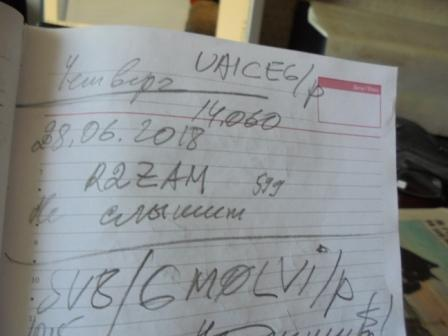 Четверг UA1CEG/p
14.060
28.06.2018
R2ZAM 599
Не слышит
SV8/GM0LVI/p